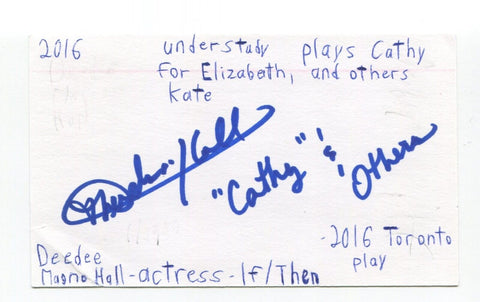 2016 understudy plays Cathy
for Elizabeth, and others
Kate
"Cathy" & 'Others
-2016 Toronto
play
Deedee
Magno Hall-actress-If/Then